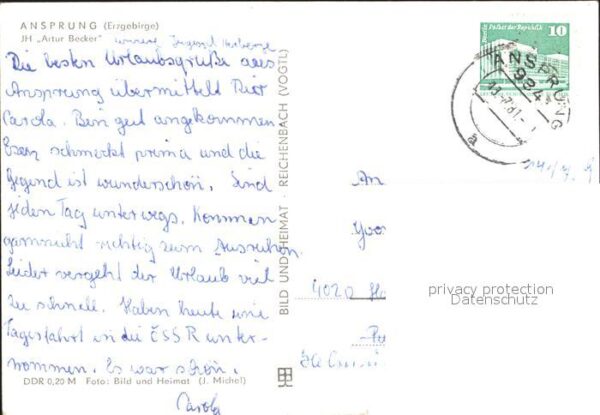 ANSPRUNG (Erzgebirge)
JH „Artur Becker" unsere Jugendherberge
Die besten Urlaubsgrüße aus
Ansprung übermittelt Dir
Carola. Bin gut angekommen
Essen schmeckt prima und die
Gegend ist wunderschön. Sind
jeden Tag unterwegs. Kommen
garnicht richtig zum Ausruhen.
Leider vergeht der Urlaub viel
zu schnell. Haben heute eine
Tagesfahrt in die ČSSR unter-
nommen. Es war schön.
Carola
DDR 0,20 M Foto: Bild und Heimat (J. Michel)
BILD UND HEIMAT · REICHENBACH (VOGTL)
Berlin, Palast der Republik
10
ANSPRUNG
9341
a
An
4020
privacy protection
Datenschutz